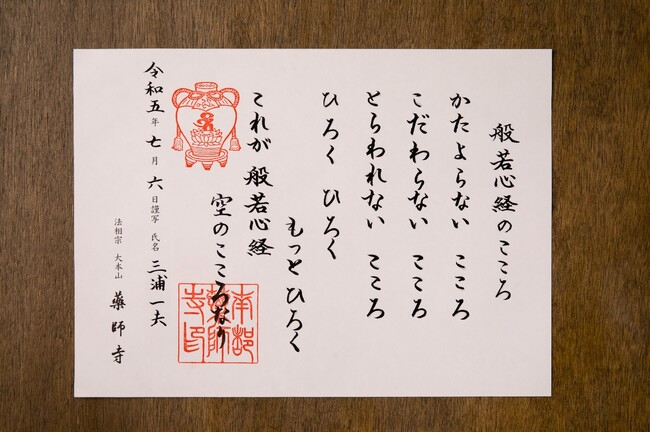 般若心経のこころ
かたよらない こころ
こだわらない こころ
とらわれない こころ
ひろく ひろく
もっと ひろく
これが 般若心経
空のこころなり
令和五年 七月 六日謹写 氏名 三浦一夫
法相宗 大本山 薬師寺
南都薬師寺印